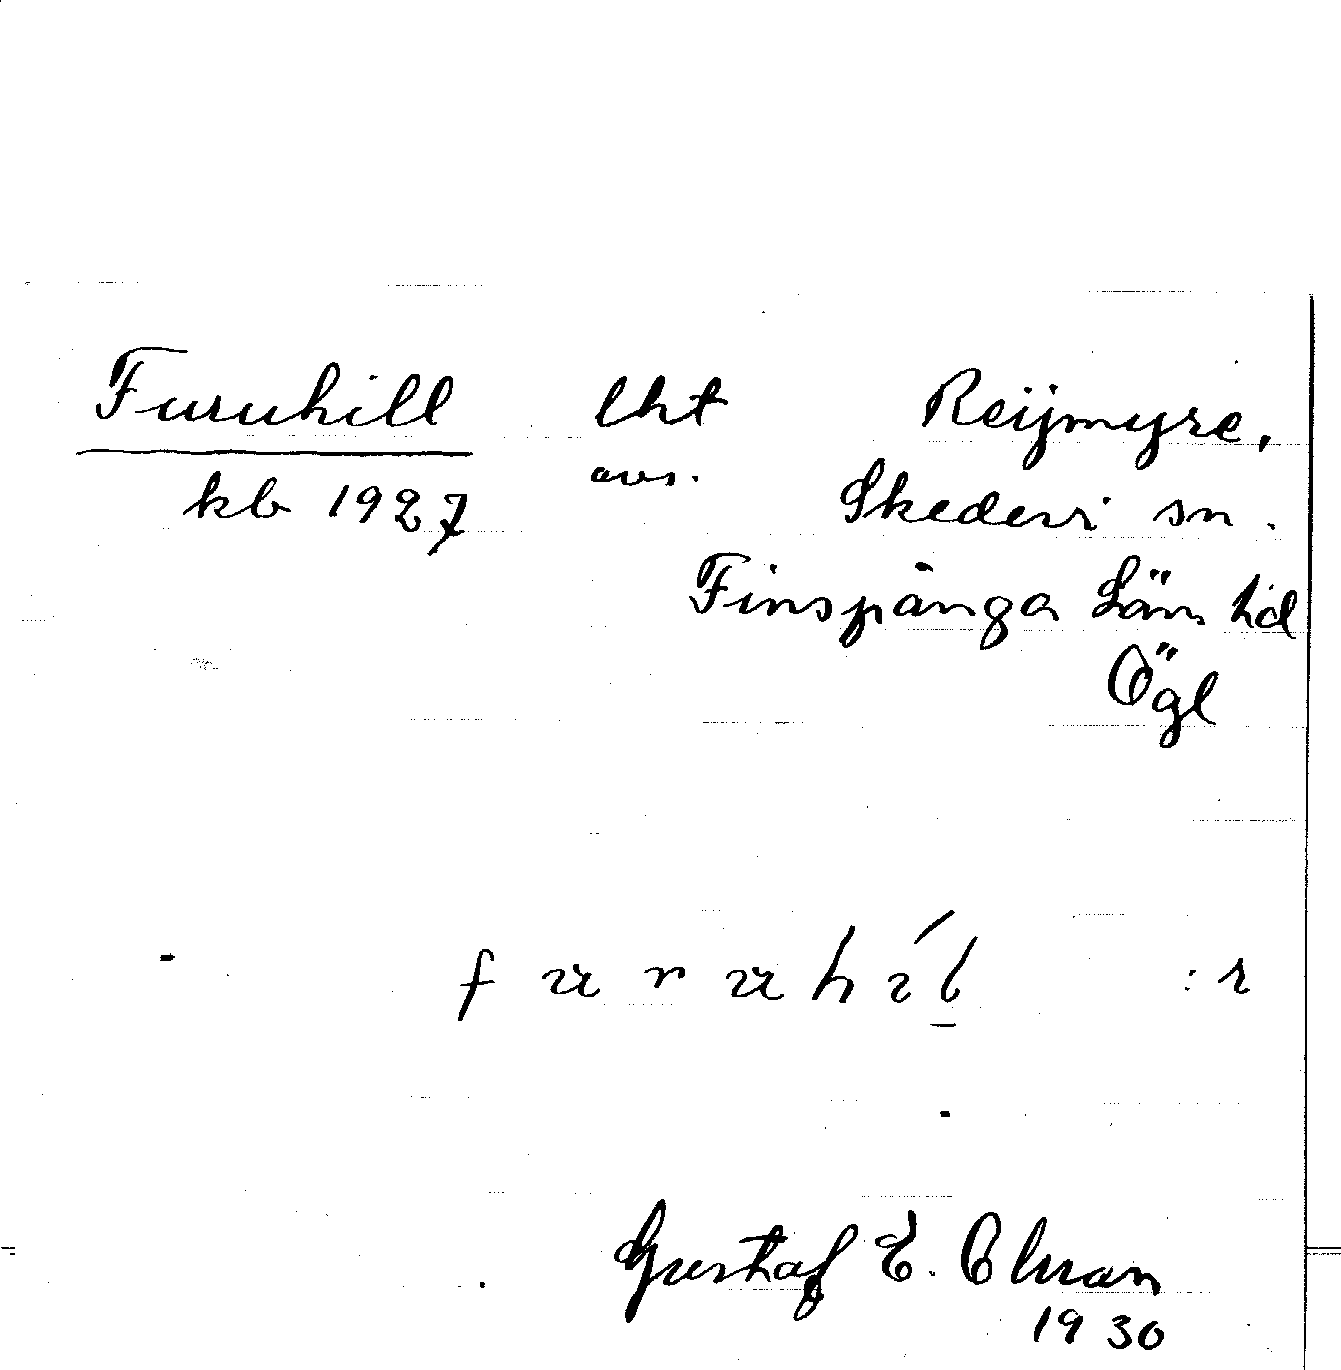 Furuhill lht Reijmyre,
kb 1927 avs. Skedevi sn.
Finspånga Läns hd
Ögl
furuhil :r
Gustaf E.
1930